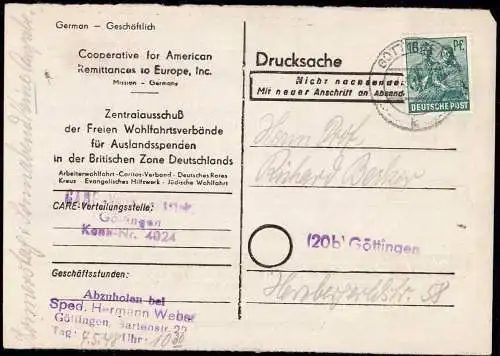 German – Geschäftlich
Cooperative for American
Remittances to Europe, Inc.
Mission – Germany
Zentralausschuß
der Freien Wohlfahrtsverbände
für Auslandsspenden
in der Britischen Zone Deutschlands
Arbeiterwohlfahrt - Caritas-Verband - Deutsches Rotes
Kreuz - Evangelisches Hilfswerk - Jüdische Wohlfahrt
CARE-Verteilungsstelle:
Göttingen
Kenn-Nr. 4024
Geschäftsstunden:
Abzuholen bei
Sped. Hermann Weber
Göttingen, Gartenstr. 22
Tag: 7.5.48 Uhr: 10
Drucksache
Nicht nachsenden
Mit neuer Anschrift an Absend
16 Pf.
DEUTSCHE POST
GÖTT
k
Herrn Prof.
Richard Becker
(20b) Göttingen
58